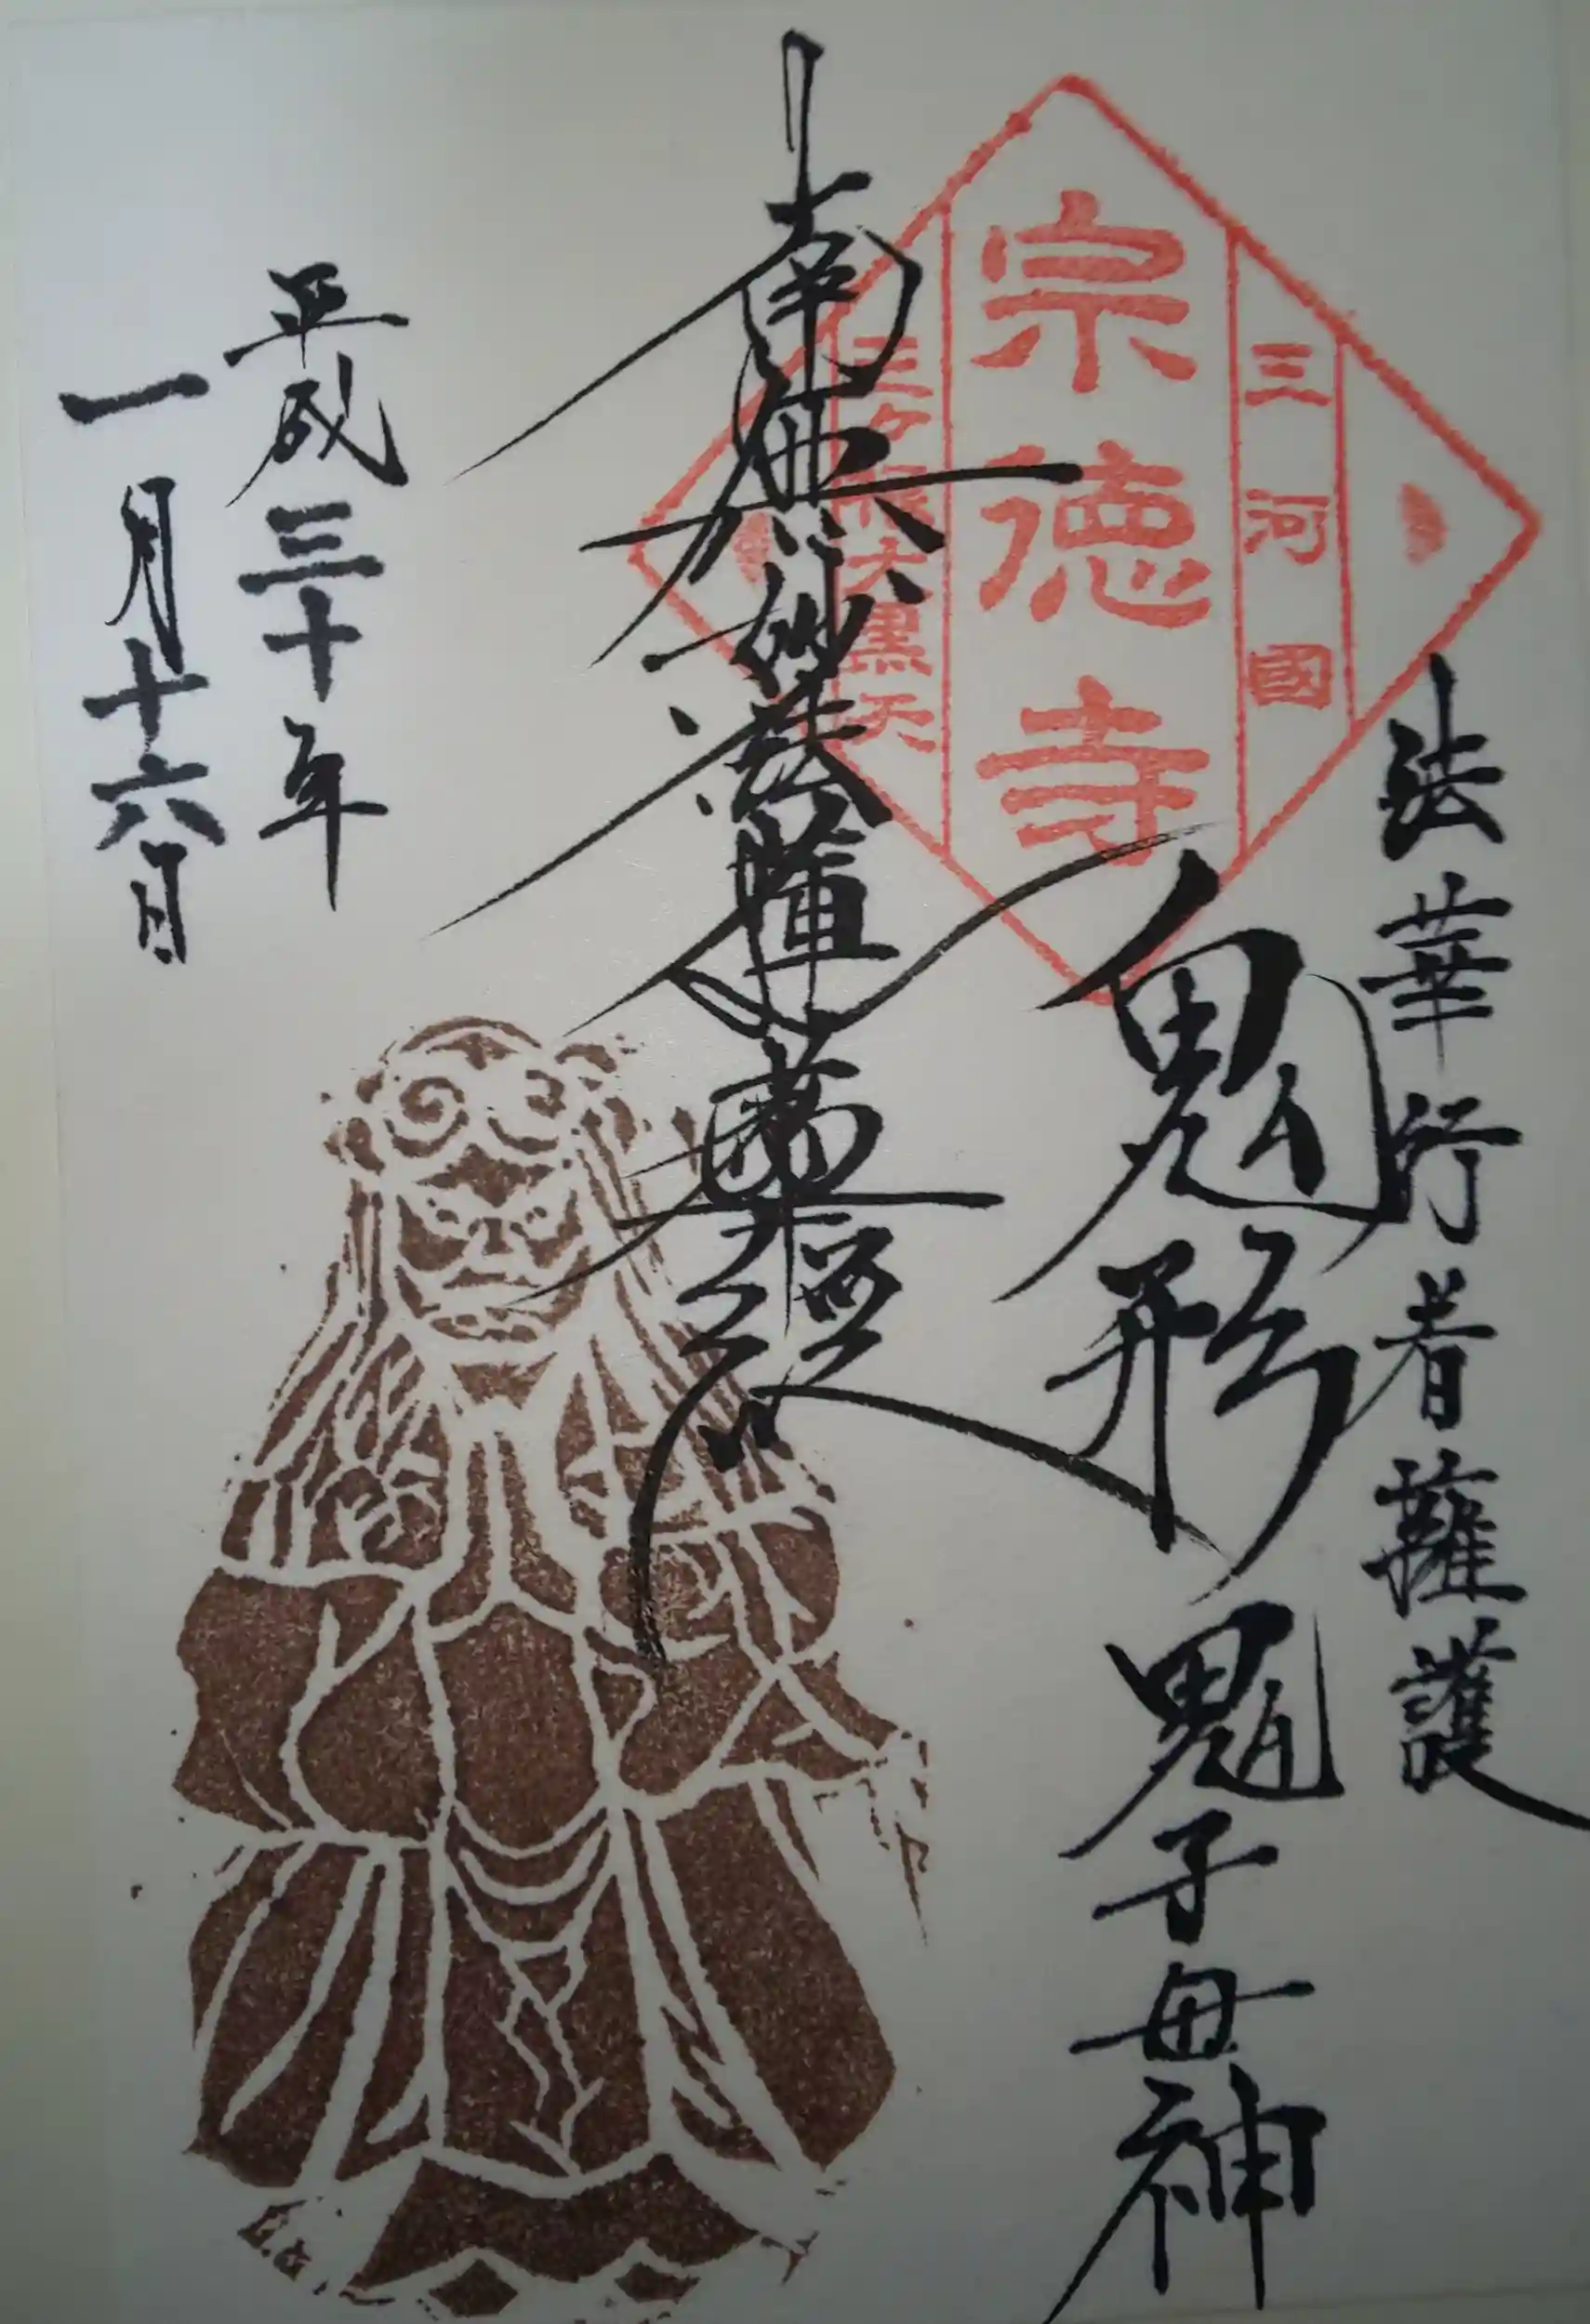 法華行者擁護
鬼形鬼子母神
三河國
宗徳寺
三ヶ根大黒天
南無妙法蓮華経
平成三十年
一月十六日